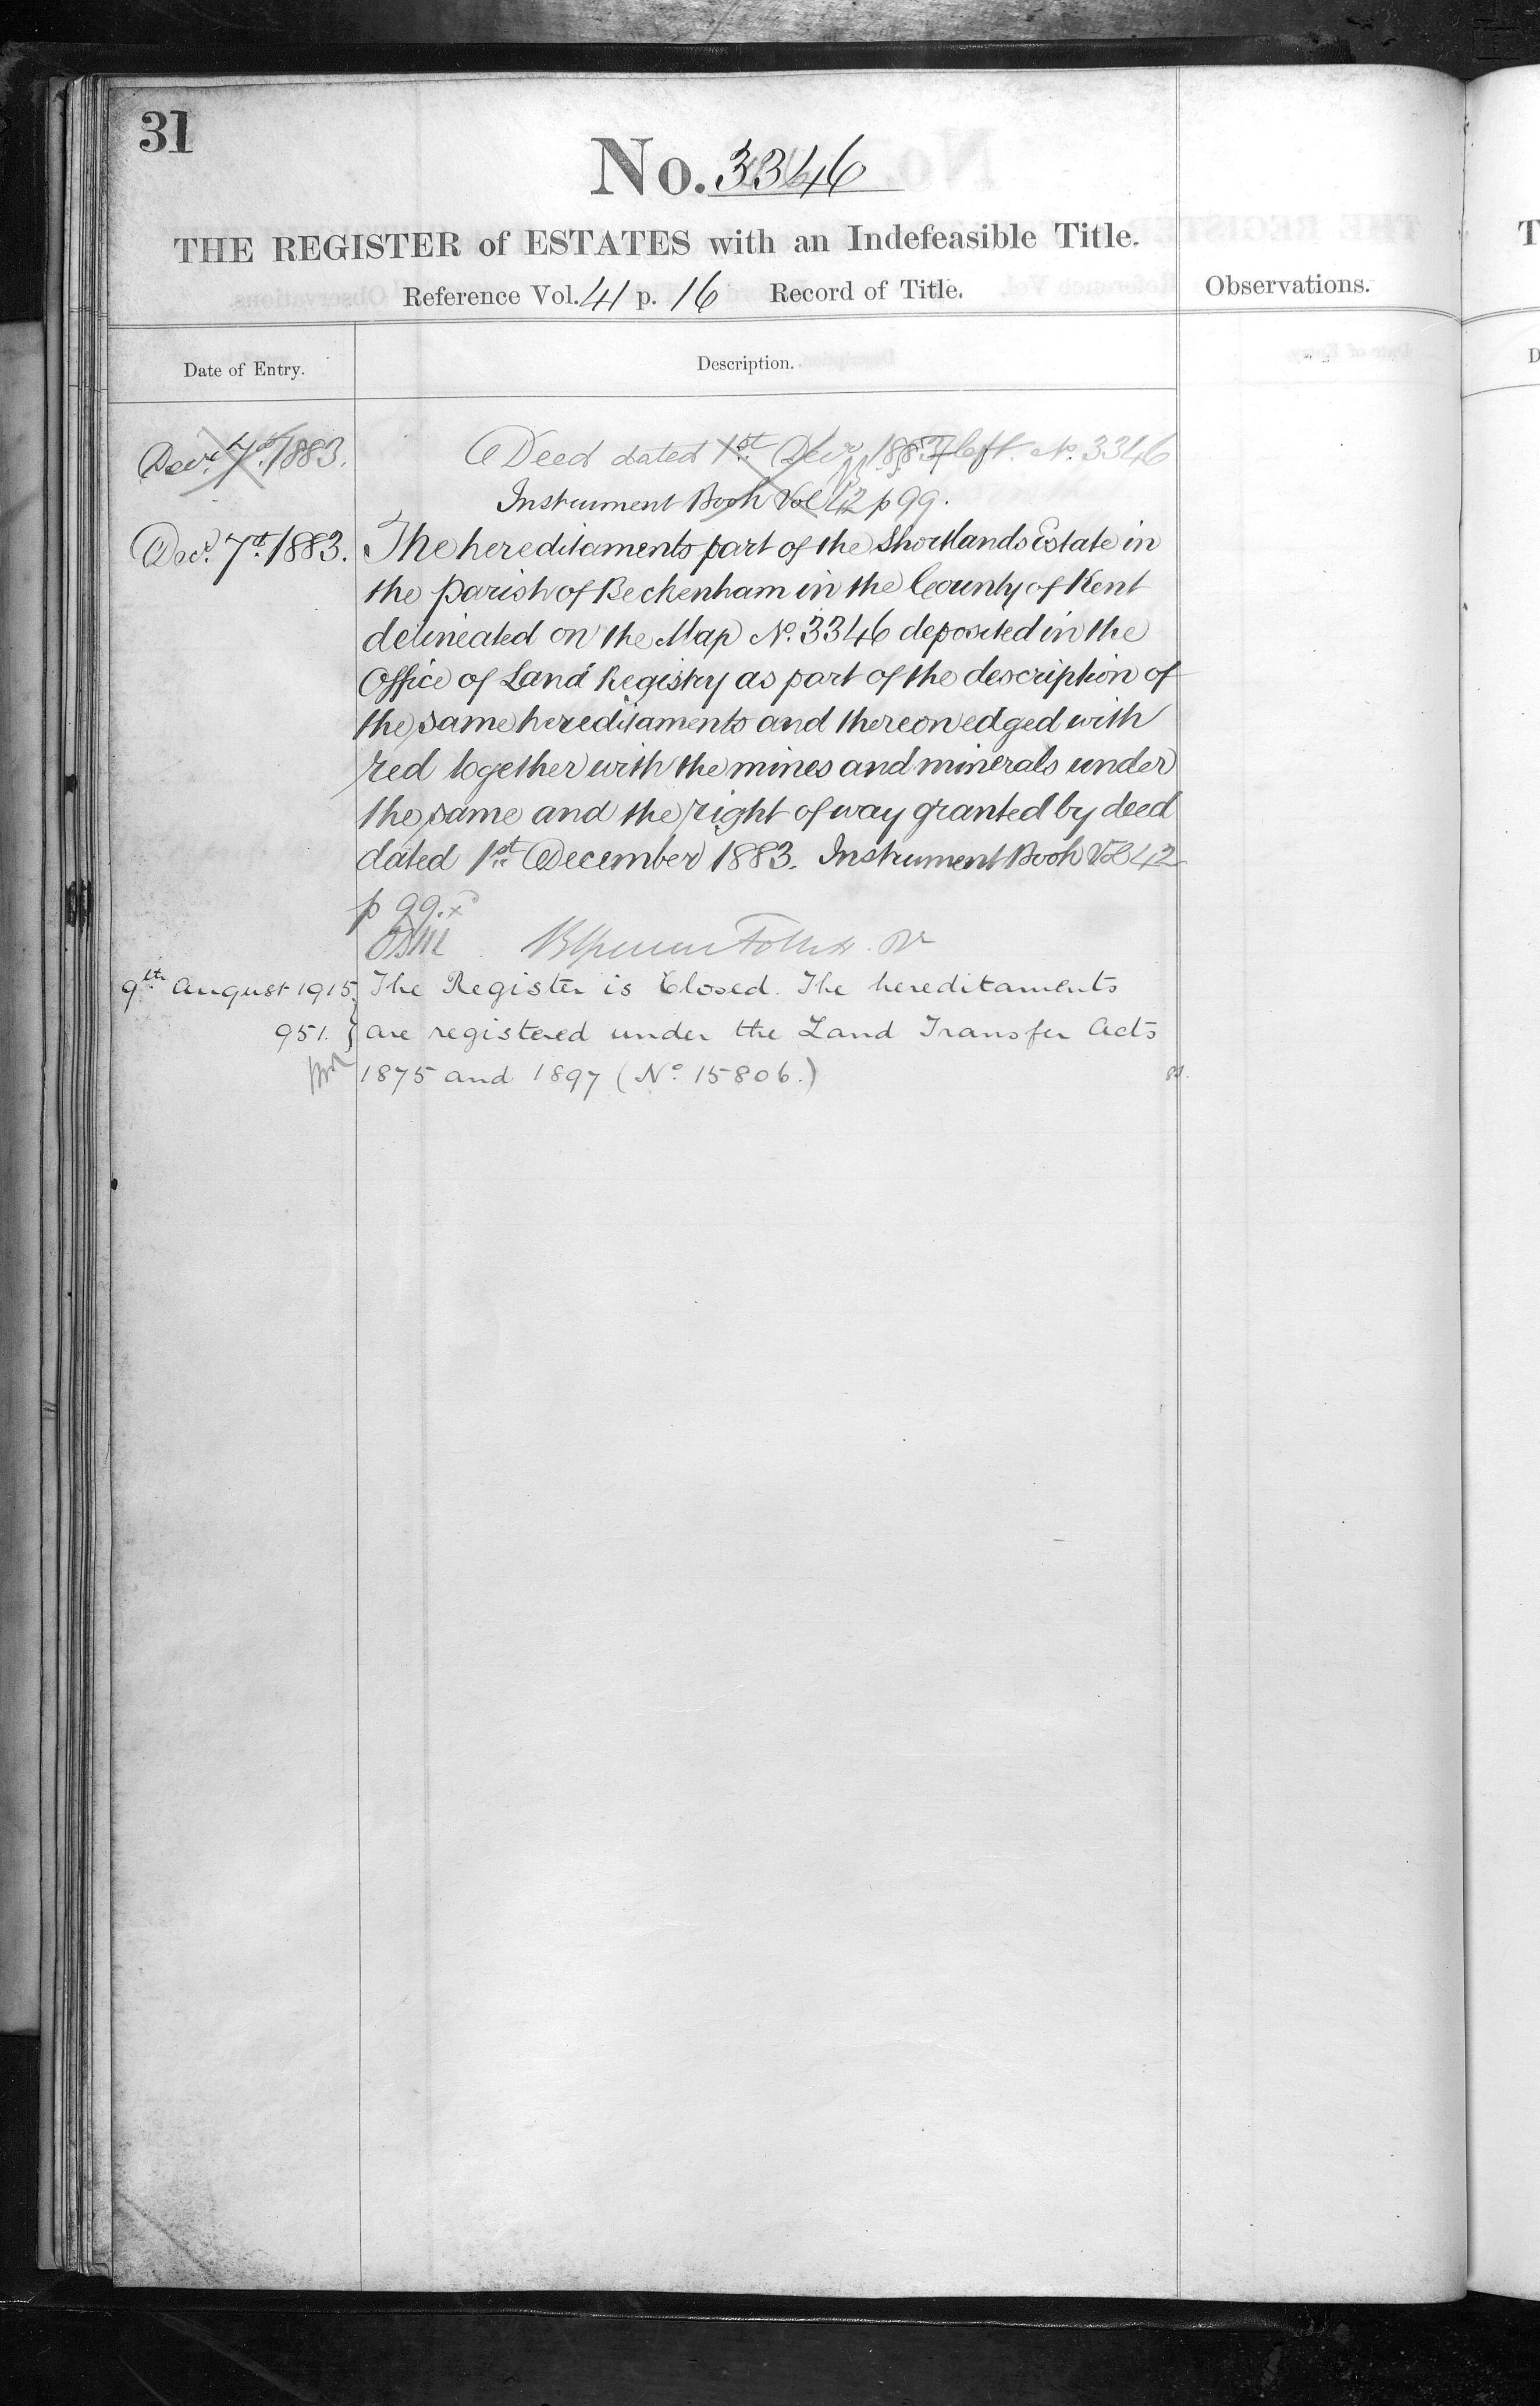 31
No. 3346
THE REGISTER of ESTATES with an Indefeasible Title.
Reference Vol. 41 p. 16 Record of Title.
Observations.
Date of Entry.
Description.
Decr. 7th. 1883.
Deed dated 1st Decr 1883 No. 3346
Instrument Book Vol 42 p 99.
Decr. 7th. 1883.
The hereditaments part of the Shortlands Estate in
the parish of Beckenham in the County of Kent
delineated on the Map No. 3346 deposited in the
Office of Land Registry as part of the description of
the same hereditaments and thereon edged with
red together with the mines and minerals under
the same and the right of way granted by deed
dated 1st December 1883. Instrument Book Vol 42
p 99.
9th August 1915
951.
The Register is Closed. The hereditaments
are registered under the Land Transfer Acts
1875 and 1897 (No. 15806.)